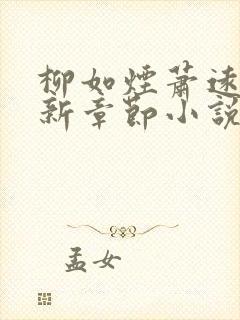 柳如煙蕭逸
新章節小説
孟女